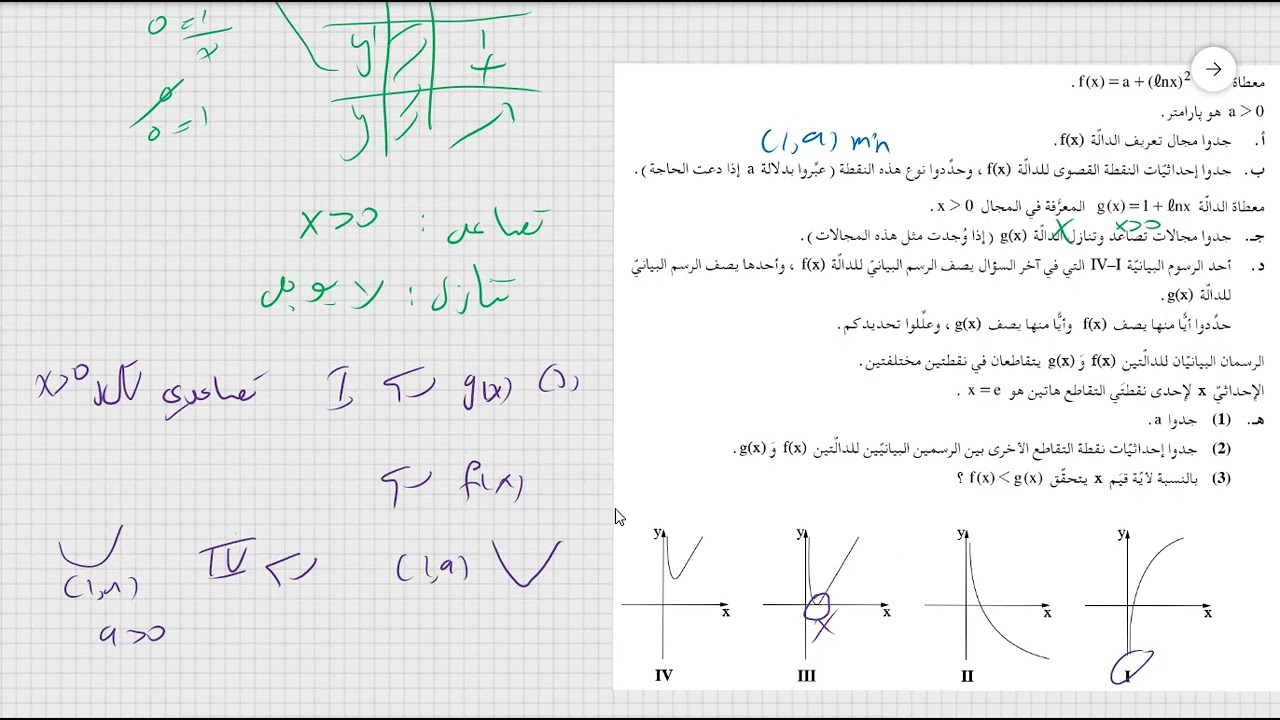 معطاة f(x) = a + (ℓnx)².
a > 0 هو پارامتر.
أ. جدوا مجال تعريف الدالّة f(x).
(1, a) min
ب. جدوا إحداثيّات النقطة القصوى للدالّة f(x) ، وحدِّدوا نوع هذه النقطة ( عبِّروا بدلالة a إذا دعت الحاجة ).
معطاة الدالّة g(x) = 1 + ℓnx المعرَّفة في المجال x > 0 .
x>0 X
جـ. جدوا مجالات تصاعد وتنازل الدالّة g(x) ( إذا وُجدت مثل هذه المجالات ).
د. أحد الرسوم البيانيّة I–IV التي في آخر السؤال يصف الرسم البيانيّ للدالّة f(x) ، وأحدها يصف الرسم البيانيّ
للدالّة g(x).
حدِّدوا أيًّا منها يصف f(x) وأيًّا منها يصف g(x) ، وعلِّلوا تحديدكم.
الرسمان البيانيّان للدالّتين f(x) وَ g(x) يتقاطعان في نقطتين مختلفتين.
الإحداثيّ x لإحدى نقطتَي التقاطع هاتين هو x = e .
هـ. (1) جدوا a.
(2) جدوا إحداثيّات نقطة التقاطع الأخرى بين الرسمين البيانيّين للدالّتين f(x) وَ g(x).
(3) بالنسبة لأيّة قيَم x يتحقّق f(x) < g(x) ؟
y y y y
x x x x
IV III II I
X
0 = 1/x
0 = 1
y' +
y
تصاعد : x>0
تنازل : لا يوجد
د) g(x) I تصاعدي لكل x>0
f(x)
(1,a) IV
(1,a)
a>0